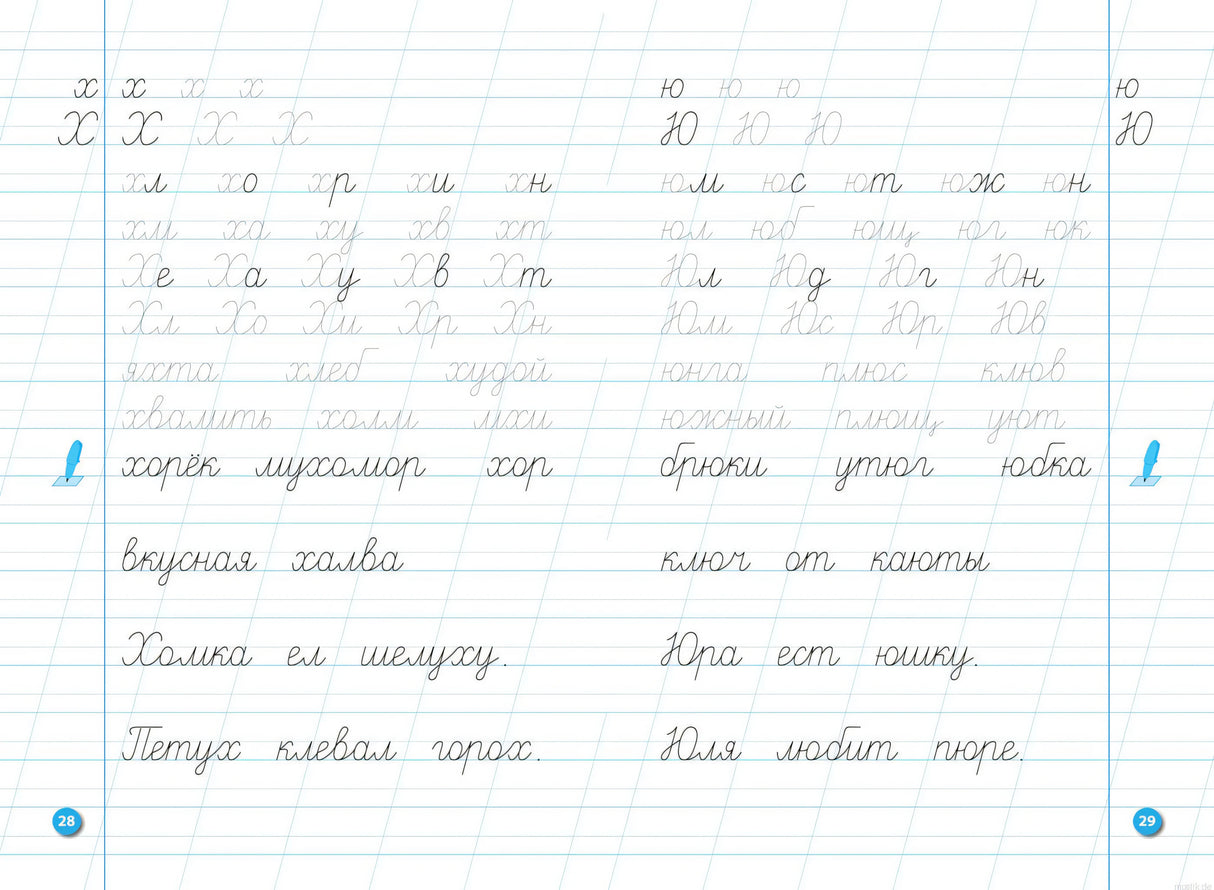 х х х х
Х Х Х Х
хл хо хр хи хн
хм ха ху хв хт
Хе Ха Ху Хв Хт
Хл Хо Хи Хр Хн
яхта хлеб худой
хвалить холм мхи
хорёк мухомор хор
вкусная халва
Холмка ел шелуху.
Петух клевал горох.
28
ю ю ю ю
Ю Ю Ю Ю
юм юс ют юж юн
юл юб ющ юг юк
Юл Юд Юг Юн
Юм Юс Юр Юв
юнга плюс клюв
южный плющ уют
брюки утюг юбка
ключ от каюты
Юра ест юшку.
Юля любит пюре.
29